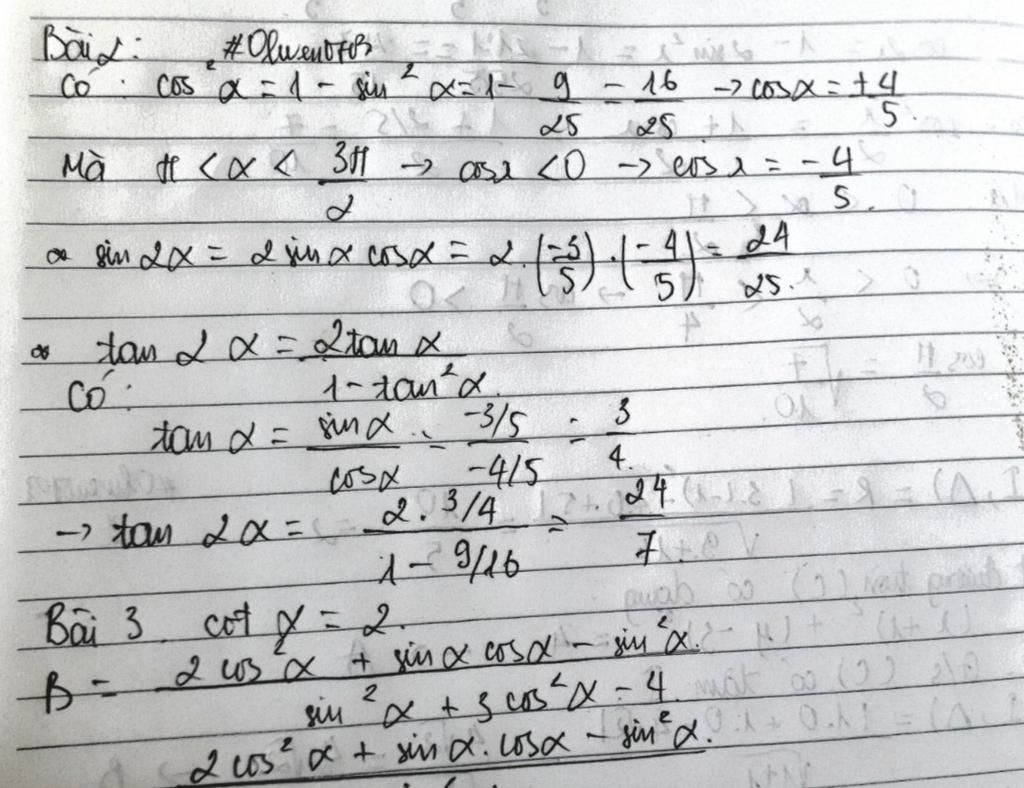 Bài 2: #OliwenDf03
Có: cos²α = 1 - sin²α = 1 - 9/25 = 16/25 → cosα = ±4/5.
Mà π < α < 3π/2 → cosα < 0 → cosα = -4/5.
∞ sin 2α = 2 sin α cosα = 2.(-3/5).(-4/5) = 24/25.
∞ tan 2α = 2tan α / 1 - tan²α.
Có:
tan α = sinα/cosα = -3/5 / -4/5 = 3/4.
→ tan 2α = 2.3/4 / 1 - 9/16 = 24/7
Bài 3. cot α = 2.
B = 2 cos²α + sinα cosα - sin²α. / sin²α + 3 cos²α - 4
2cos²α + sinα.cosα - sin²α.